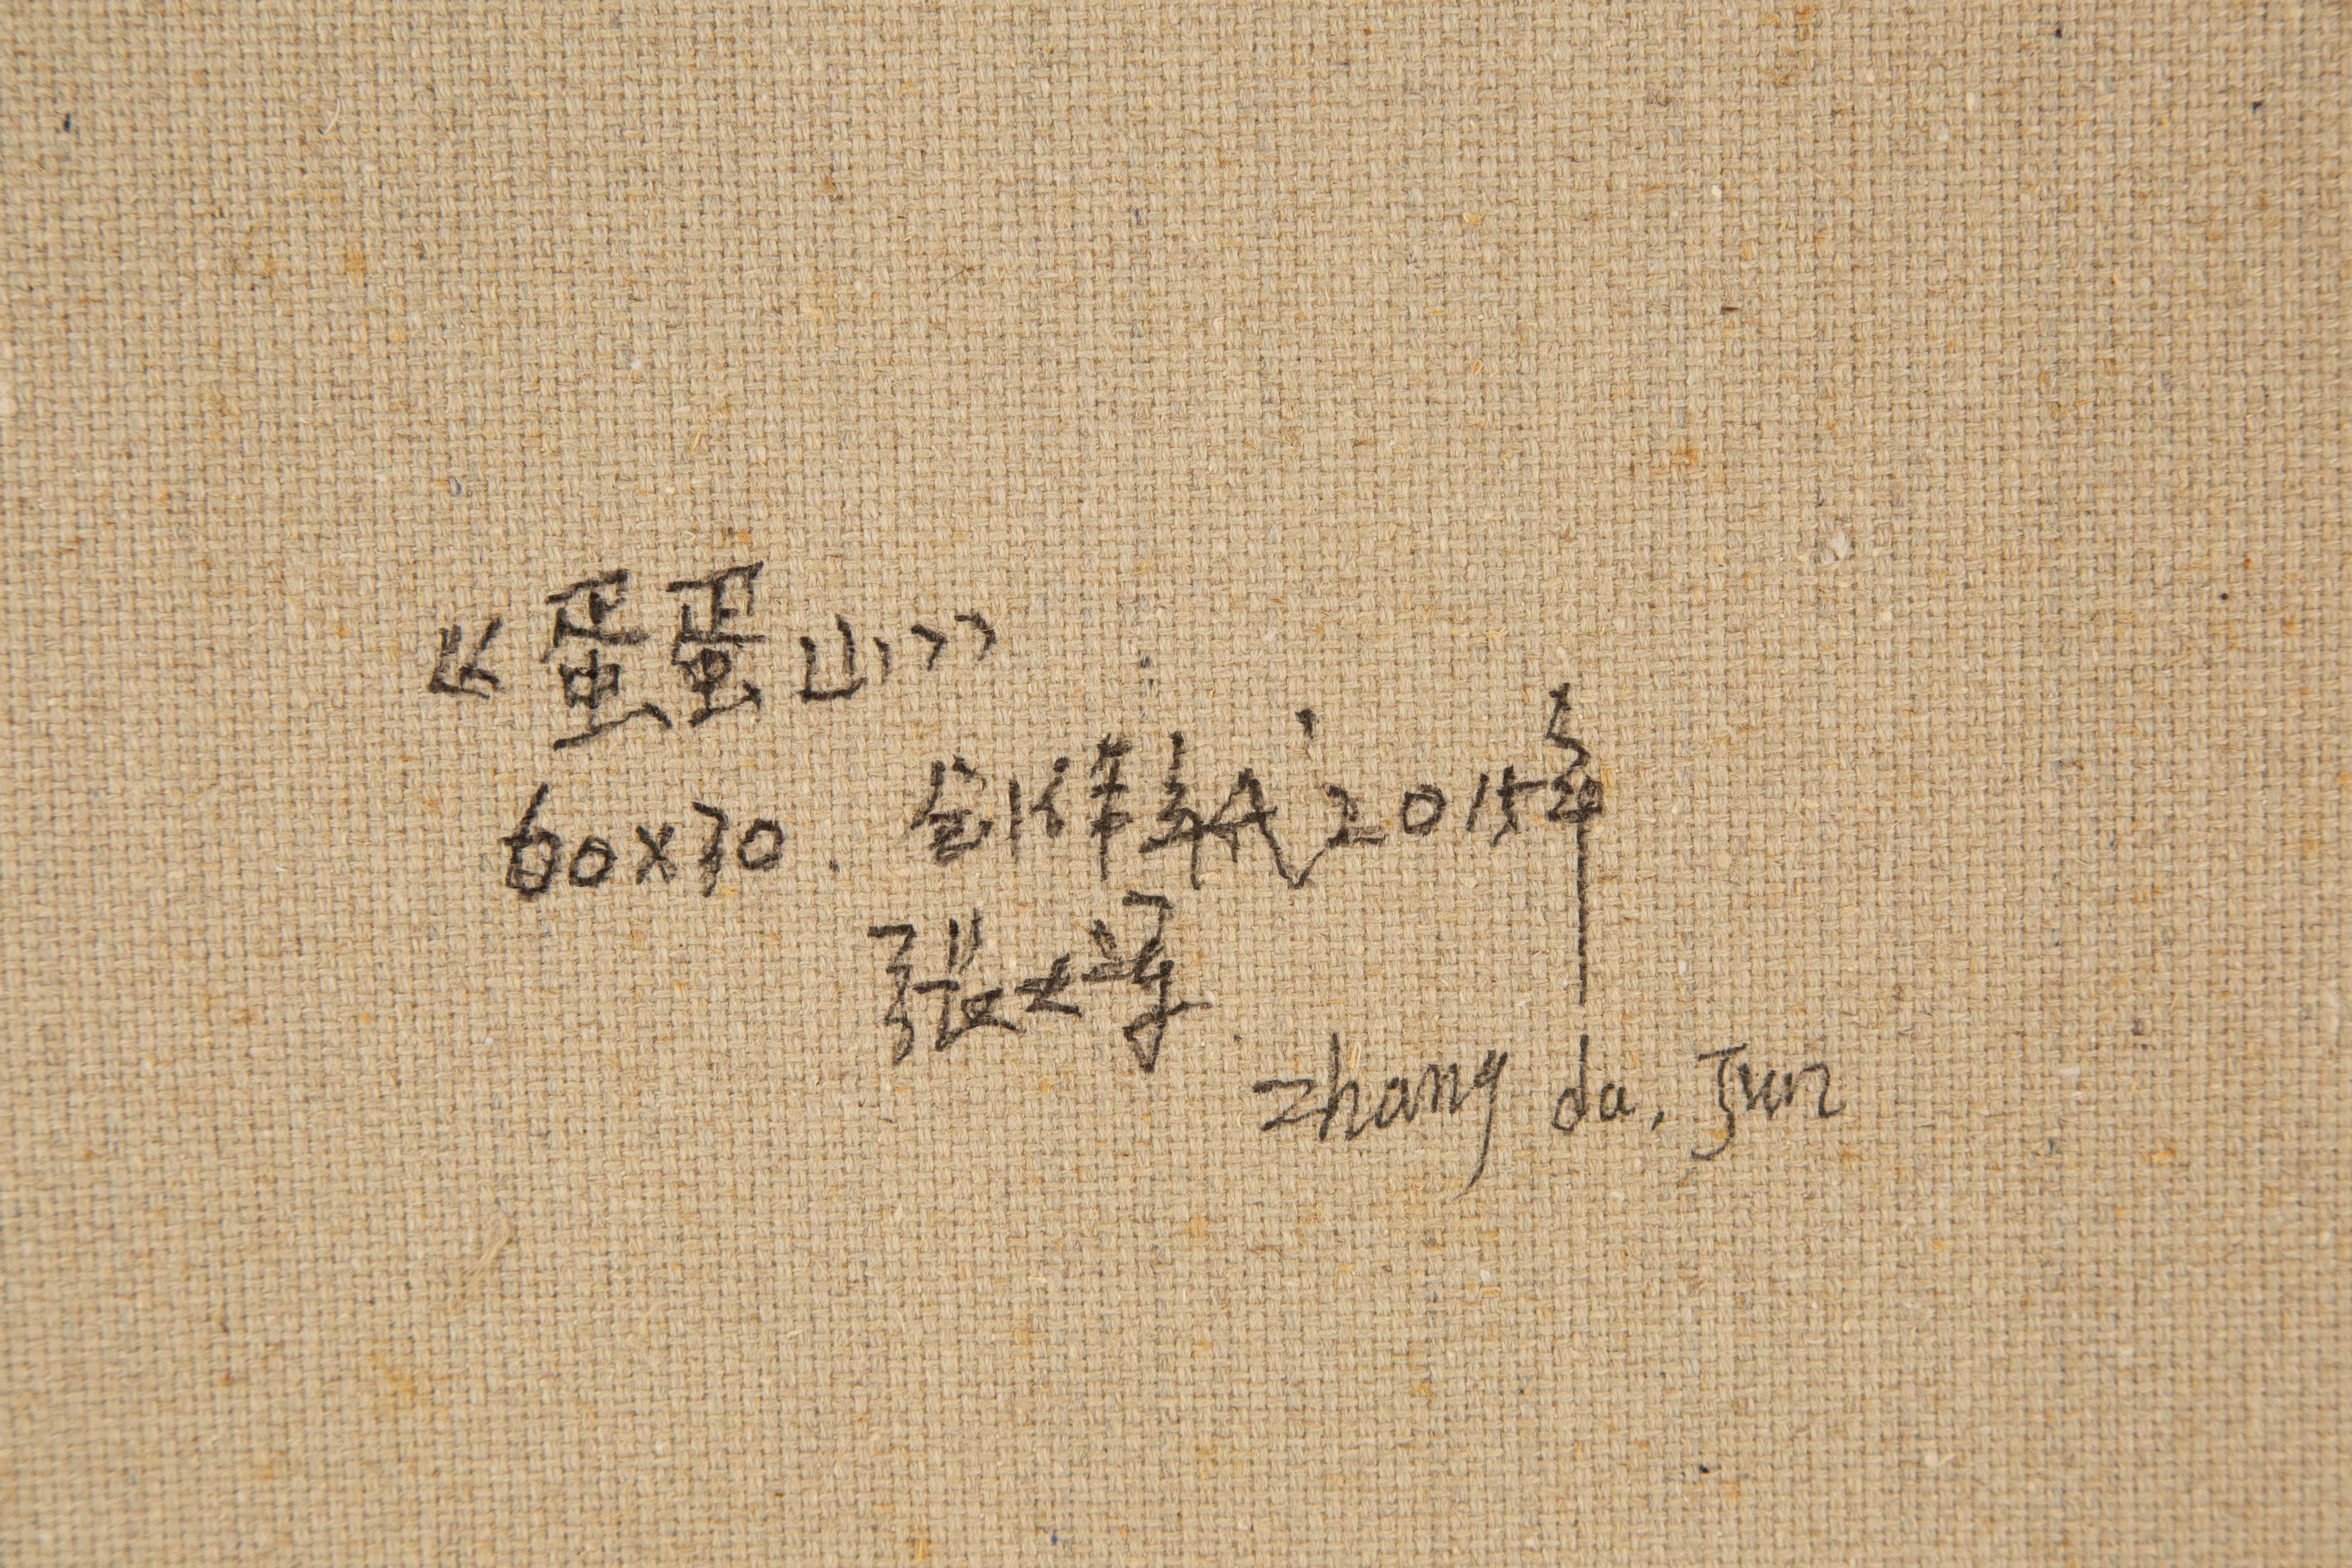 《蛋蛋山》
60x30. 创作年代2015年
张大军
zhang da, Jun